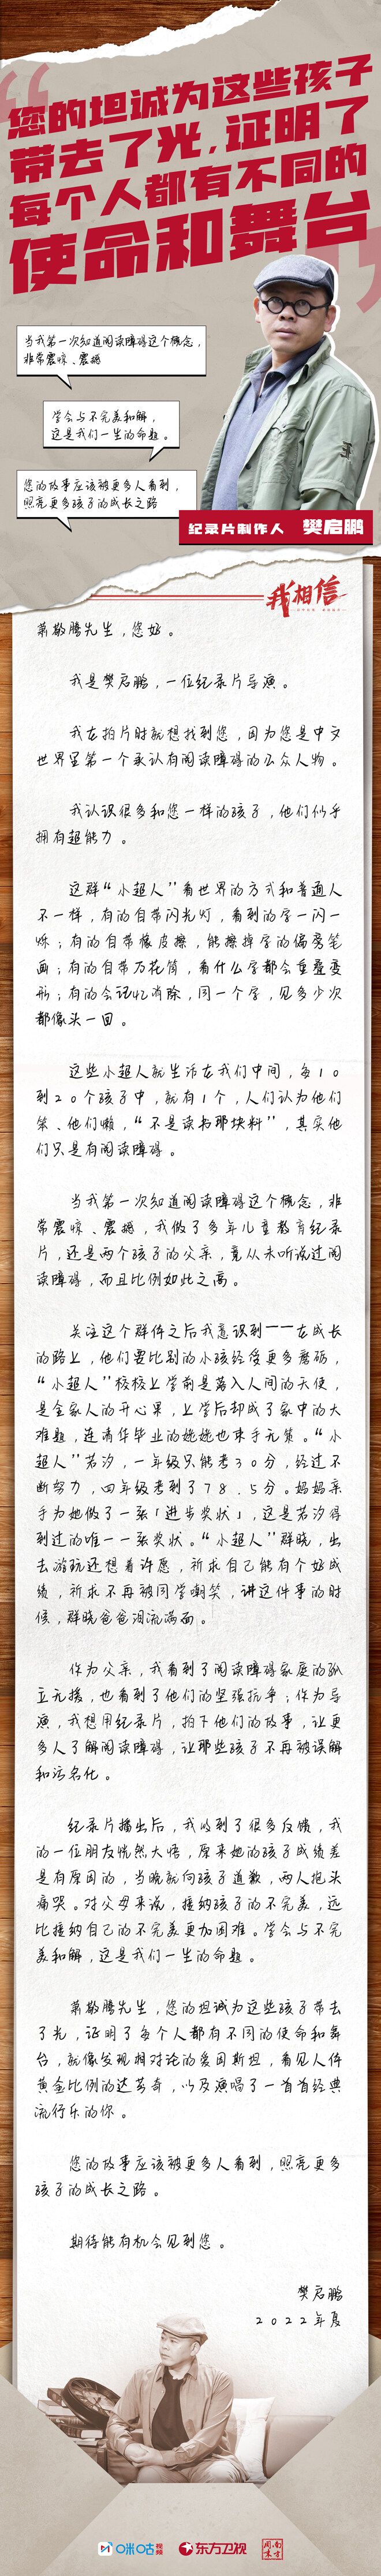 您的坦诚为这些孩子
带去了光，证明了
每个人都有不同的
使命和舞台
当我第一次知道阅读障碍这个概念，
非常震惊、震撼
学会与不完美和解，
这是我们一生的命题。
您的故事应该被更多人看到，
照亮更多孩子的成长之路
纪录片制作人 樊启鹏
我相信
萧敬腾先生，您好。
我是樊启鹏，一位纪录片导演。
我在拍片时就想找到您，因为您是中文
世界里第一个承认有阅读障碍的公众人物。
我认识很多和您一样的孩子，他们似乎
拥有超能力。
这群“小超人”看世界的方式和普通人
不一样，有的自带闪光灯，看到的字一闪一
烁；有的自带橡皮擦，能擦掉字的偏旁笔
画；有的自带万花筒，看什么字都会重叠变
形；有的会记忆消除，同一个字，见多少次
都像头一回。
这些小超人就生活在我们中间，每10
到20个孩子中，就有1个，人们认为他们
笨、他们懒，“不是读书那块料”，其实他
们只是有阅读障碍。
当我第一次知道阅读障碍这个概念，非
常震惊、震撼，我做了多年儿童教育纪录
片，还是两个孩子的父亲，竟从未听说过阅
读障碍，而且比例如此之高。
关注这个群体之后我意识到——在成长
的路上，他们要比别的小孩经受更多磨砺，
“小超人”校校上学前是落入人间的天使，
是全家人的开心果，上学后却成了家中的大
难题，连清华毕业的妈妈也束手无策。“小
超人”若汐，一年级只能考30分，经过不
断努力，四年级考到了78.5分。妈妈亲
手为她做了一张「进步奖状」，这是若汐得
到过的唯一一张奖状。“小超人”群晓，出
去游玩还想着许愿，祈求自己能有个好成
绩，祈求不再被同学嘲笑，讲这件事的时
候，群晓爸爸泪流满面。
作为父亲，我看到了阅读障碍家庭的孤
立无援，也看到了他们的坚强抗争；作为导
演，我想用纪录片，拍下他们的故事，让更
多人了解阅读障碍，让那些孩子不再被误解
和污名化。
纪录片播出后，我收到了很多反馈，我
的一位朋友恍然大悟，原来她的孩子成绩差
是有原因的，当晚就向孩子道歉，两人抱头
痛哭。对父母来说，接纳孩子的不完美，远
比接纳自己的不完美更加困难。学会与不完
美和解，这是我们一生的命题。
萧敬腾先生，您的坦诚为这些孩子带去
了光，证明了每个人都有不同的使命和舞
台，就像发现相对论的爱因斯坦，看见人体
黄金比例的达芬奇，以及演唱了一首首经典
流行乐的你。
您的故事应该被更多人看到，照亮更多
孩子的成长之路。
期待能有机会见到您。
樊启鹏
2022年夏
咪咕视频 东方卫视 南方周末